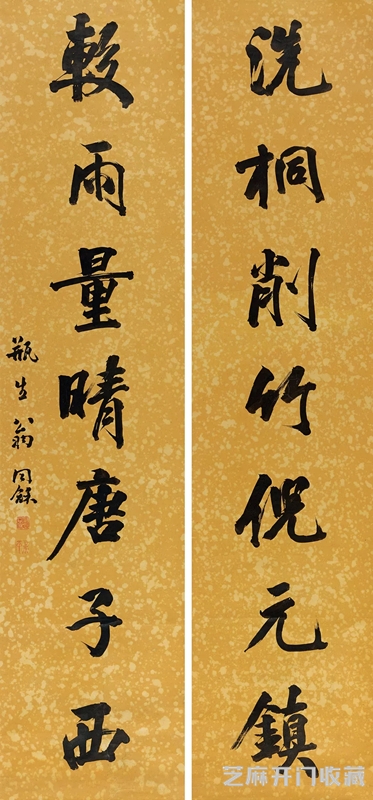 洗桐削竹倪元鎮
較雨量晴唐子西
瓶生翁同龢
芝麻开门收藏